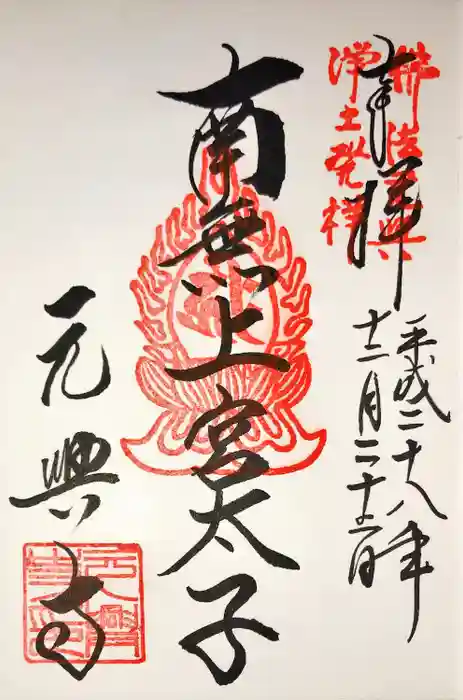 奉拝
佛法元興
浄土発祥
平成二十八年
十二月二十日
南無上宮太子
元興寺